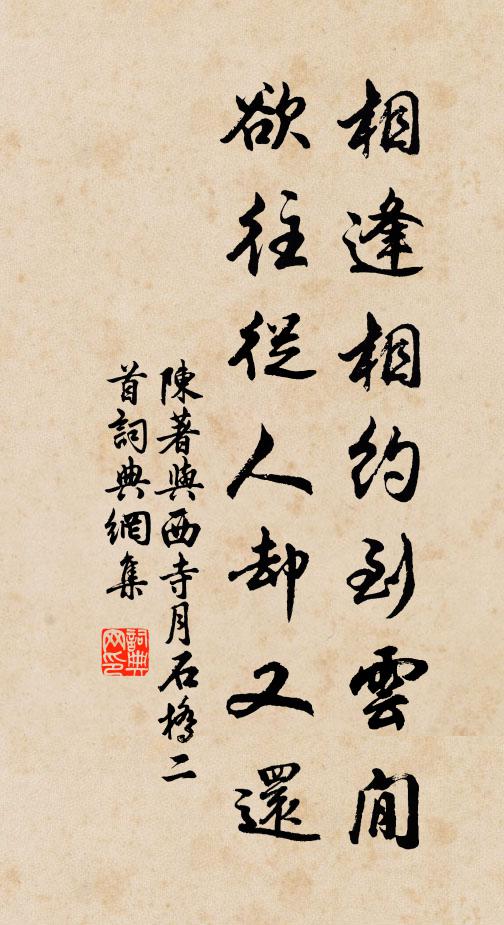 相逢相約到雲間
欲往從人却又還
陳著與西寺月石橋二
首詞典網集
詞典
网印